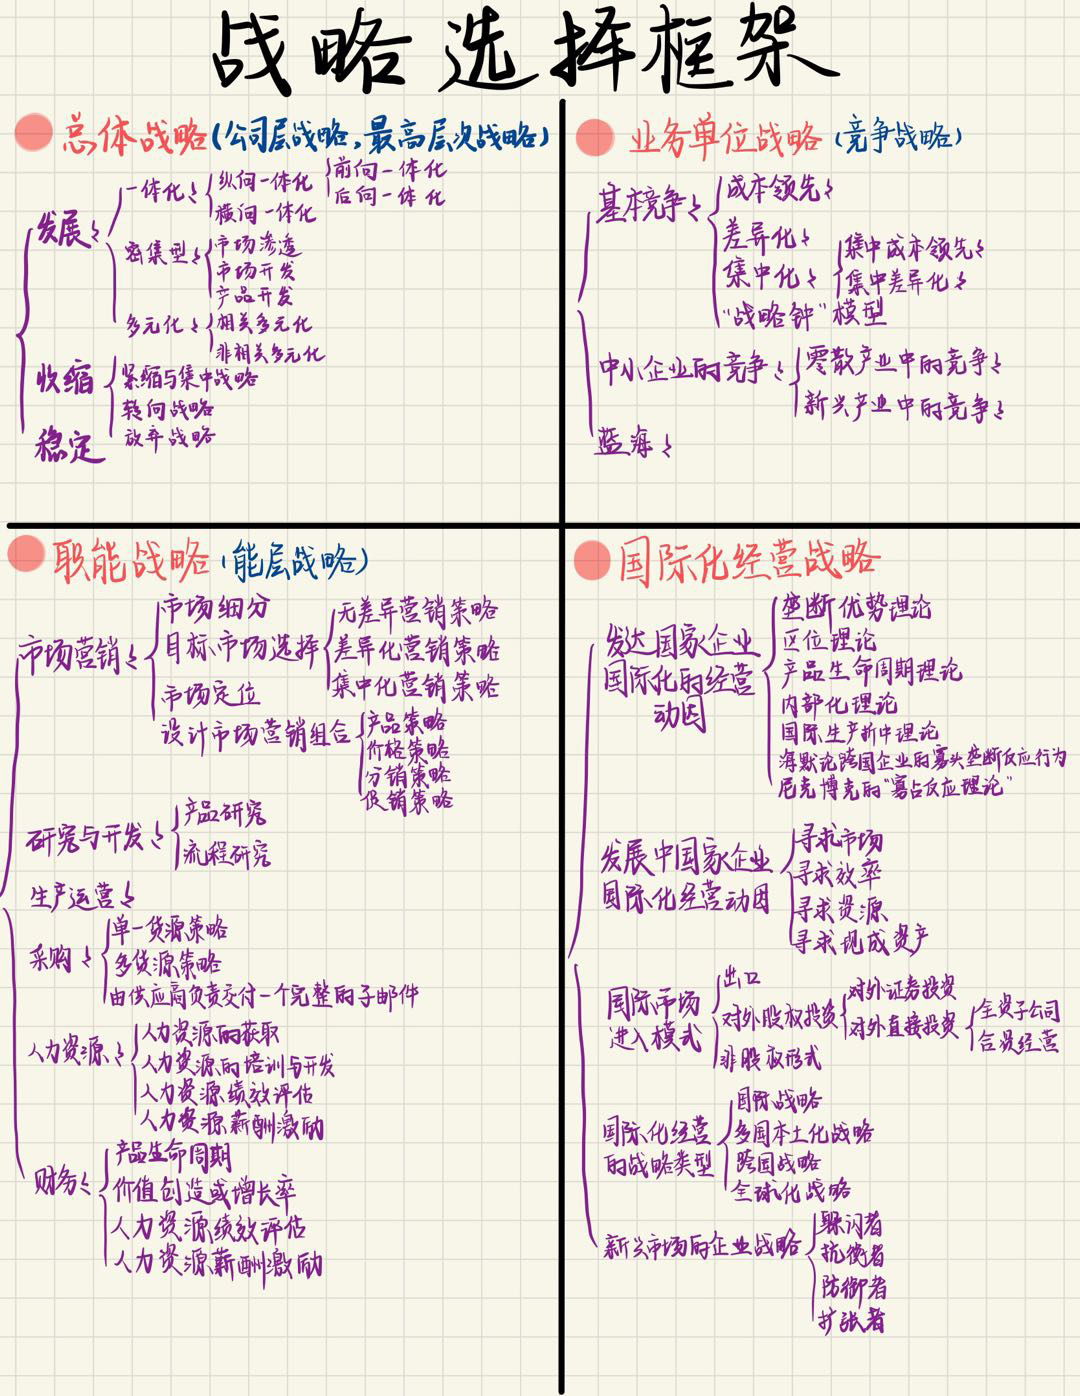 战略选择框架
总体战略(公司层战略,最高层次战略)
发展
一体化
纵向一体化
前向一体化
后向一体化
横向一体化
密集型
市场渗透
市场开发
产品开发
多元化
相关多元化
非相关多元化
收缩
紧缩与集中战略
转向战略
放弃战略
稳定
业务单位战略(竞争战略)
基本竞争
成本领先
差异化
集中化
集中成本领先
集中差异化
"战略钟"模型
中小企业的竞争
零散产业中的竞争
新兴产业中的竞争
蓝海
职能战略(能层战略)
市场营销
市场细分
目标市场选择
无差异营销策略
差异化营销策略
集中化营销策略
市场定位
设计市场营销组合
产品策略
价格策略
分销策略
促销策略
研究与开发
产品研究
流程研究
生产运营
采购
单一货源策略
多货源策略
由供应商负责交付一个完整的子部件
人力资源
人力资源的获取
人力资源的培训与开发
人力资源绩效评估
人力资源薪酬激励
财务
产品生命周期
价值创造或增长率
人力资源绩效评估
人力资源薪酬激励
国际化经营战略
发达国家企业
国际化的经营
动因
垄断优势理论
区位理论
产品生命周期理论
内部化理论
国际生产折中理论
海默论跨国企业的寡头垄断反应行为
尼克博克的"寡占反应理论"
发展中国家企业
国际化经营动因
寻求市场
寻求效率
寻求资源
寻求现成资产
国际市场
进入模式
出口
对外股权投资
对外证券投资
对外直接投资
全资子公司
合资经营
非股权形式
国际化经营
的战略类型
国际战略
多国本土化战略
跨国战略
全球化战略
新兴市场的企业战略
躲闪者
抗衡者
防御者
扩张者